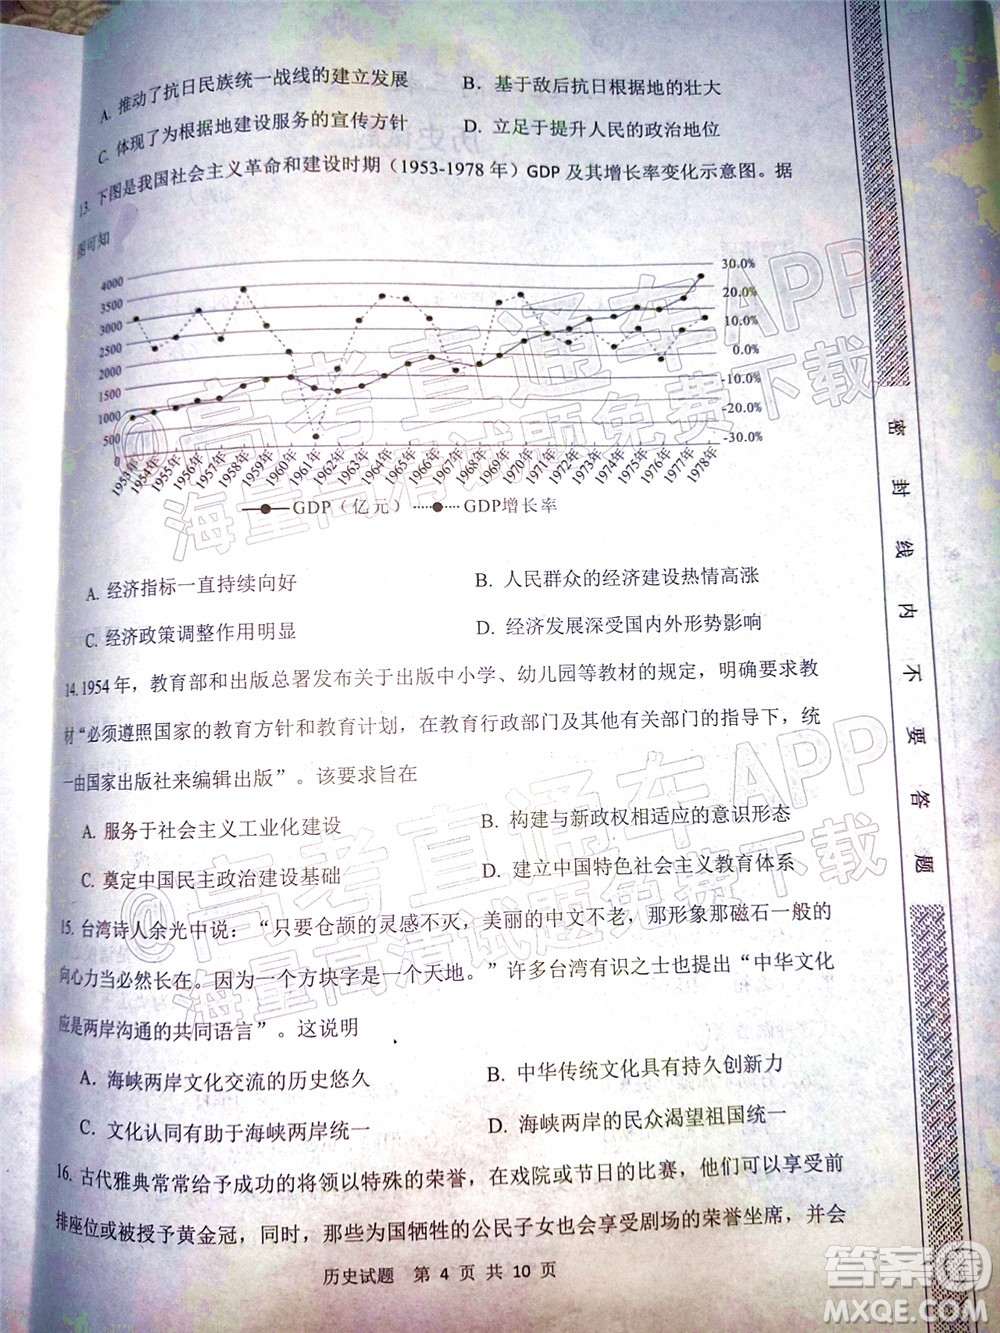 A. 推动了抗日民族统一战线的建立发展 B. 基于敌后抗日根据地的壮大
C. 体现了为根据地建设服务的宣传方针 D. 立足于提升人民的政治地位
13. 下图是我国社会主义革命和建设时期（1953-1978 年）GDP 及其增长率变化示意图。据
图可知
4000
3500
3000
2500
2000
1500
1000
500
0
30.0%
20.0%
10.0%
0.0%
-10.0%
-20.0%
-30.0%
1953年 1954年 1955年 1956年 1957年 1958年 1959年 1960年 1961年 1962年 1963年 1964年 1965年 1966年 1967年 1968年 1969年 1970年 1971年 1972年 1973年 1974年 1975年 1976年 1977年 1978年
GDP（亿元） GDP增长率
A. 经济指标一直持续向好 B. 人民群众的经济建设热情高涨
C. 经济政策调整作用明显 D. 经济发展深受国内外形势影响
14. 1954 年，教育部和出版总署发布关于出版中小学、幼儿园等教材的规定，明确要求教
材“必须遵照国家的教育方针和教育计划，在教育行政部门及其他有关部门的指导下，统
一由国家出版社来编辑出版”。该要求旨在
A. 服务于社会主义工业化建设 B. 构建与新政权相适应的意识形态
C. 奠定中国民主政治建设基础 D. 建立中国特色社会主义教育体系
15. 台湾诗人余光中说：“只要仓颉的灵感不灭，美丽的中文不老，那形象那磁石一般的
向心力当必然长在。因为一个方块字是一个天地。”许多台湾有识之士也提出“中华文化
应是两岸沟通的共同语言”。这说明
A. 海峡两岸文化交流的历史悠久 B. 中华传统文化具有持久创新力
C. 文化认同有助于海峡两岸统一 D. 海峡两岸的民众渴望祖国统一
16. 古代雅典常常给予成功的将领以特殊的荣誉，在戏院或节日的比赛，他们可以享受前
排座位或被授予黄金冠，同时，那些为国牺牲的公民子女也会享受剧场的荣誉坐席，并会
历史试题 第 4 页 共 10 页
密封线内不要答题
@高考直通车APP
海量高清试题免费下载
@高考直通车APP
海量高清试题免费下载
答案圈
MXQE.COM